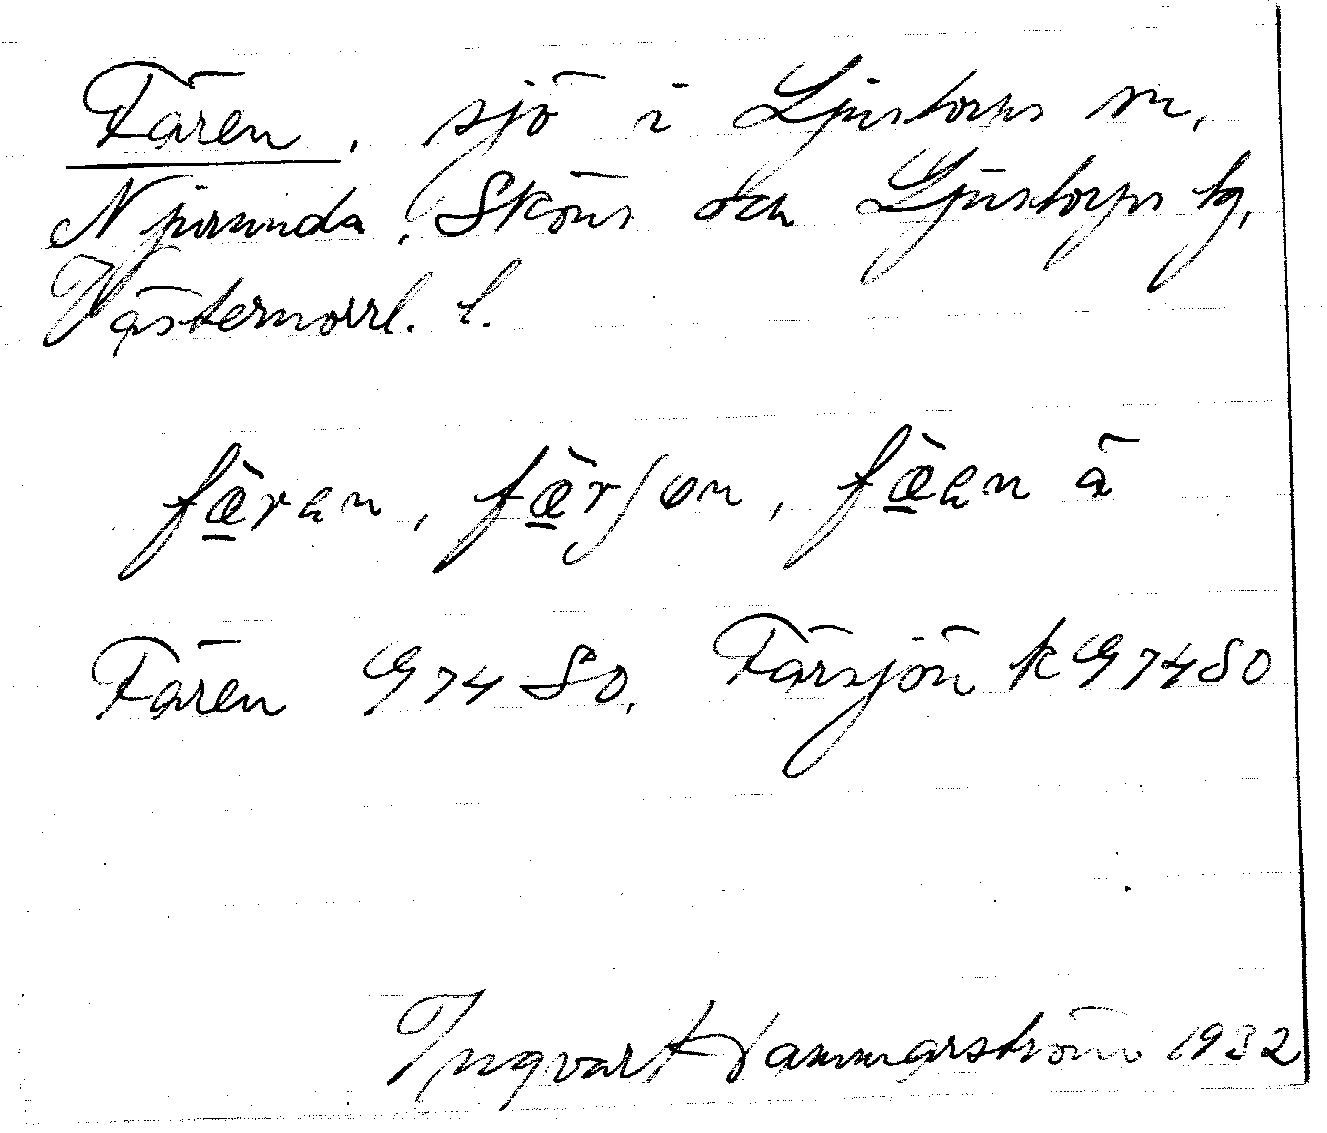 Fären, sjö i Ljustorps sn,
Njurunda, Sköns och Ljustorps tg,
Västernorrl. l.
fæ̀ran, fæ̀rʃøn, fæ̀an å
Fären G7480. Färsjön k G7480
Ingvar Hammarström 1932